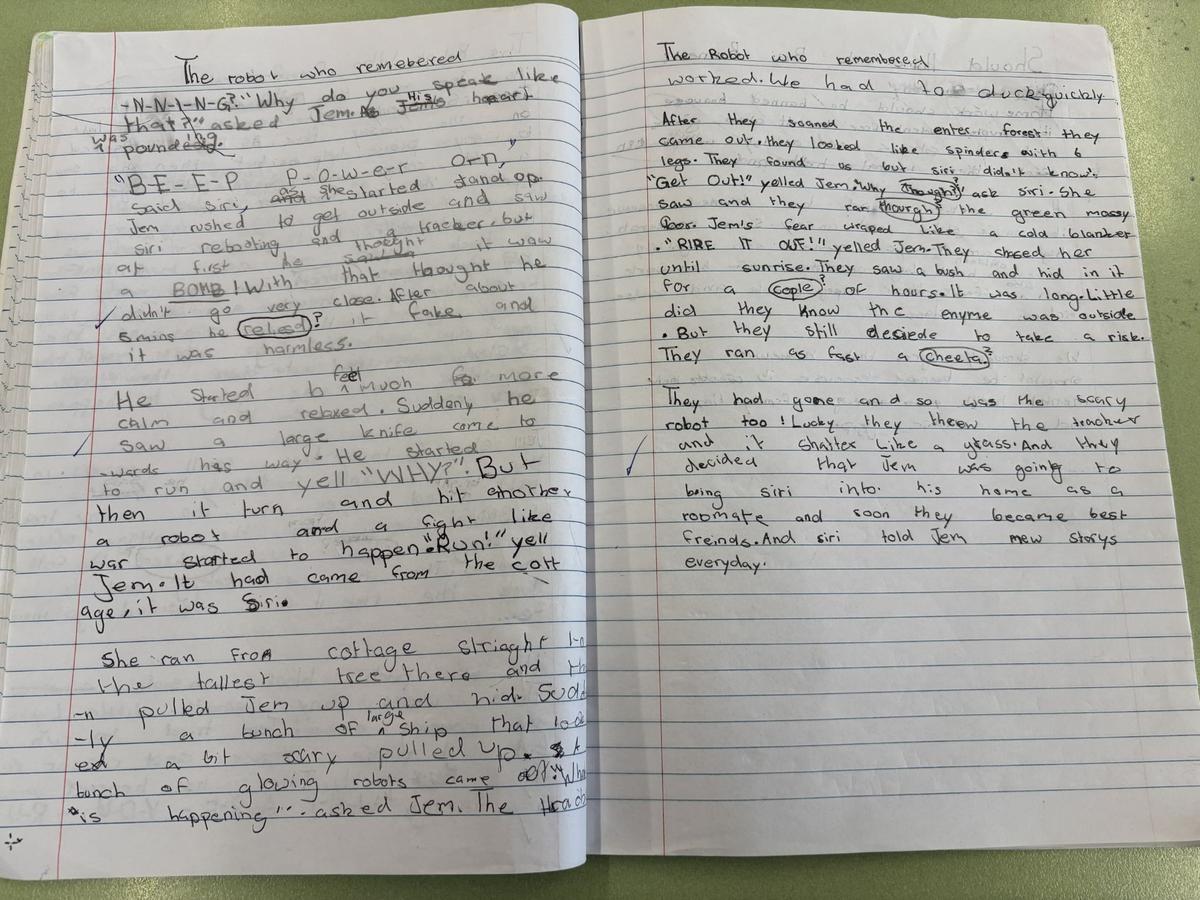 The robot who remebered
-N-N-I-N-G?" "Why do you speak like
that?" asked Jem. As Jem's His heart
was pounding.
"B-E-E-P P-o-w-e-r Orn,"
Said Siri, and as she started stand up.
Jem rushed to get outside and saw
Siri rebooting and a tracker. but
at first he thought it waw
a BOMB! With that thought he
didn't go very close. After about
5 mins he relesd? it fake, and
it was harmless.
He started to feel much more
calm and relaxed. Suddenly he
saw a large knife come to
-wards his way. He started
to run and yell "WHY?". But
then it turn and hit another
a robot and a fight like
war started to happen. "Run!" yell
Jem. It had came from the cott
age, it was Siri.
She ran from cottage striaght
the tallest tree there and
-n pulled Jem up and hid. Sudd
-ly a bunch of large ship that look
ed a bit scary pulled up. A
bunch of glowing robots came off. "Wha
is happening". asked Jem. The
The Robot who remembered
worked. We had to duck quickly
After they scaned the enter forest they
came out. they looked like spinders with 6
legs. They found us but siri didn't know.
"Get Out!" yelled Jem. "Why though?" ask siri. She
saw and they ran thourgh? the green mossy
floor. Jem's fear wraped like a cold blanket
. "RIRE IT OUT!" yelled Jem. They chased her
until sunrise. They saw a bush and hid in it
for a cople? of hours. It was long. Little
did they know the enyme was outside
. But they still desiede to take a risk.
They ran as fast a cheeta?
They had gone and so was the scary
robot too! Lucky they threw the tracher
and it shatter like a grass. And they
decided that Jem was going to
being siri into his home as a
roomate and soon they became best
freinds. And siri told Jem mew storys
everyday.